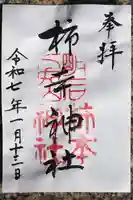 奉拝
柿本神社
令和七年一月十二日
柿本
神社